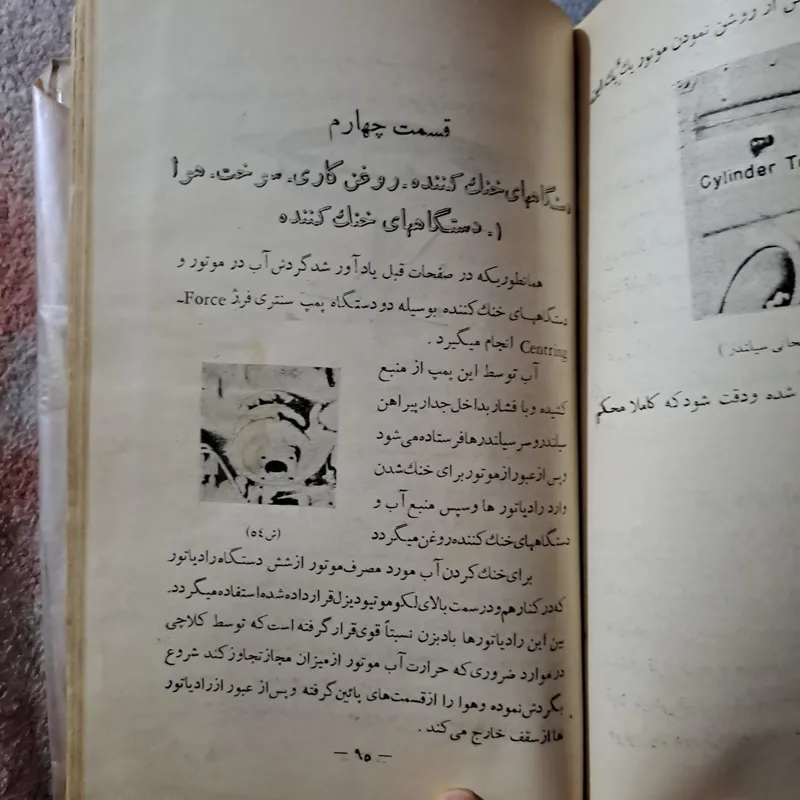 قسمت چهارم
دستگاههای خنك كننده ـ روغن كاری ـ سوخت ـ هوا
۱ ـ دستگاههای خنك كننده
همانطوریکه در صفحات قبل یادآور شد گردش آب در موتور و
دستگاههای خنك کننده بوسیله دو دستگاه پمپ سنتری فرژ Force-
Centring انجام میگیرد .
آب توسط این پمپ از منبع
کشیده و با فشار بداخل جدار پیراهن
سیلندر و سر سیلندرها فرستاده می شود
و پس از عبور از موتور برای خنك شدن
وارد رادیاتور ها و سپس منبع آب و
دستگاههای خنك کننده روغن میگردد
(ش ٥٤)
برای خنك کردن آب مورد مصرف موتور از شش دستگاه رادیاتور
که در کنار هم و در سمت بالای لکوموتیو دیزل قرار داده شده استفاده میگردد.
بین این رادیاتورها بادبزن نسبتاً قوی قرار گرفته است که توسط کلاچی
در موارد ضروری که حرارت آب موتور از میزان مجاز تجاوز کند شروع
بگردش نموده و هوا را از قسمت های پائین گرفته و پس از عبور از رادیاتور
ها از سقف خارج می کند .
— ۹۵ —
از روشن نمودن موتور یک یک
Cylinder
سیلندر )
شده و دقت شود که کاملا محکم